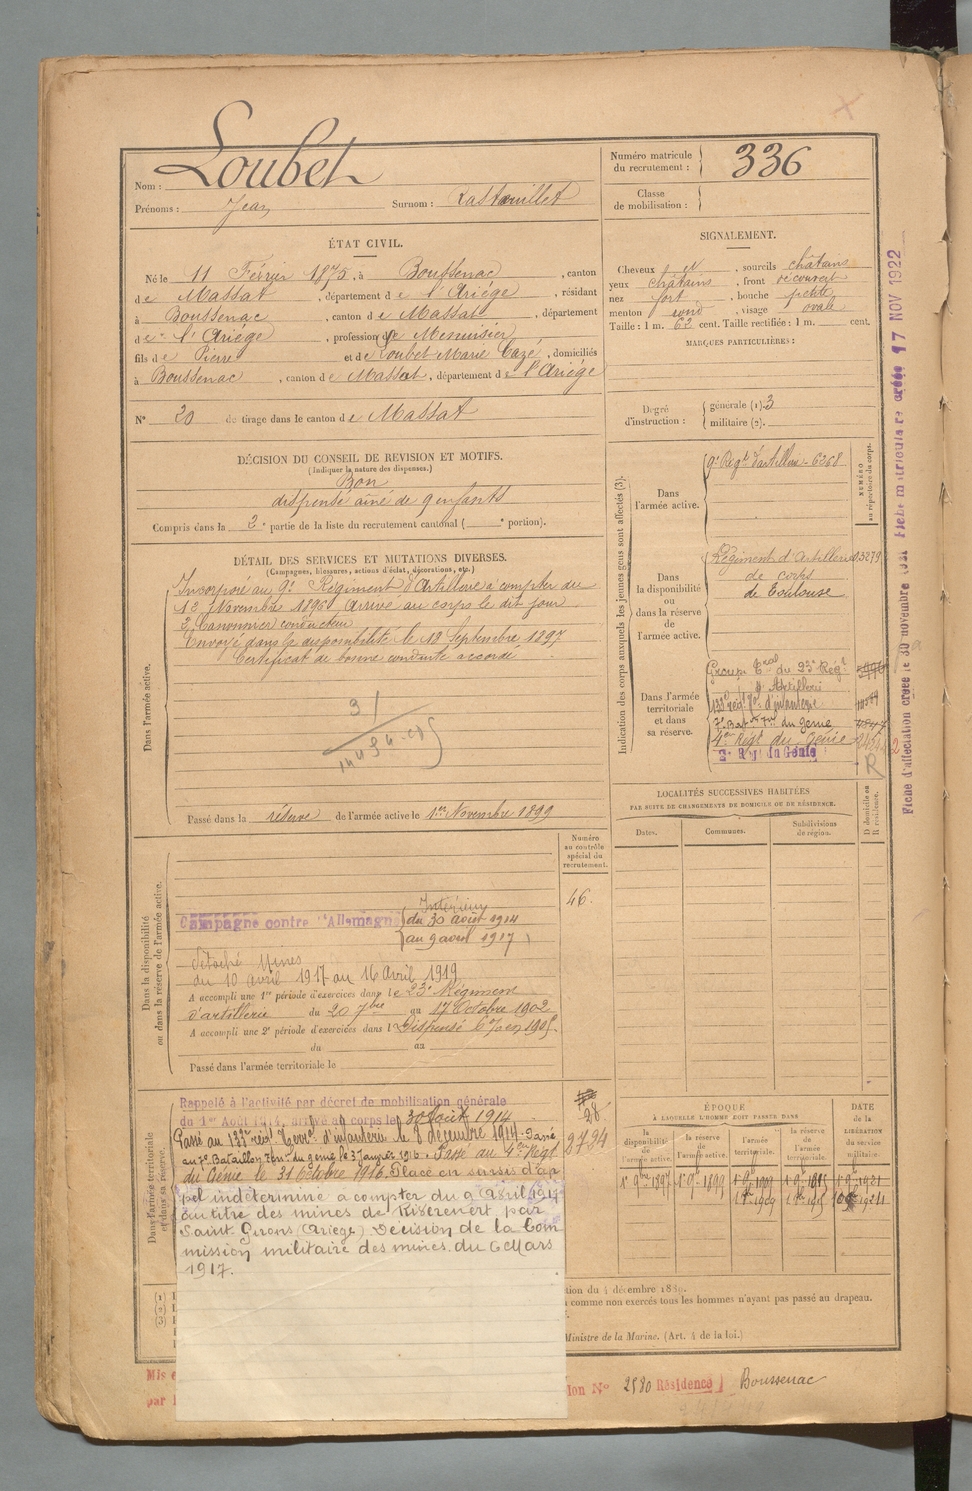 Nom : Loubet
Prénoms : Jean Surnom : Rastouillet
Numéro matricule
du recrutement : 336
Classe
de mobilisation :
ÉTAT CIVIL.
Né le 11 Février 1875, à Boussenac, canton
de Massat, département de l'Ariége, résidant
à Boussenac, canton de Massat, département
de l'Ariége, profession de Menuisier
fils de Pierre et de Loubet Marie Cazé, domiciliés
à Boussenac, canton de Massat, département de l'Ariége
N° 20 de tirage dans le canton de Massat
SIGNALEMENT.
Cheveux , sourcils châtains
yeux châtains, front découvert
nez fort, bouche petite
menton rond, visage ovale
Taille : 1 m. 62 cent. Taille rectifiée : 1 m. cent.
MARQUES PARTICULIÈRES :
Degré
d'instruction :
générale (1). 3
militaire (2).
DÉCISION DU CONSEIL DE REVISION ET MOTIFS.
(Indiquer la nature des dispenses.)
Bon
dispensé aîné de 9 enfants
Compris dans la 2e partie de la liste du recrutement cantonal ( e portion).
DÉTAIL DES SERVICES ET MUTATIONS DIVERSES.
(Campagnes, blessures, actions d'éclat, décorations, etc.)
Dans l'armée active.
Incorporé au 9e Régiment d'Artillerie à compter du
12 Novembre 1896 Arrivé au corps le dit jour
2e Canonnier conducteur
Envoyé dans la disponibilité le 18 Septembre 1897
Certificat de bonne conduite accordé
31
Passé dans la réserve de l'armée active le 1er Novembre 1899
Indication des corps auxquels les jeunes gens sont affectés (3).
NUMÉRO
au répertoire du corps.
Dans
l'armée active.
9e Régt d'artillerie - 6268
Dans
la disponibilité
ou
dans la réserve
de
l'armée active.
Régiment d'Artillerie 03279
de corps
de Toulouse
Dans l'armée
territoriale
et dans
sa réserve.
Group. Tral du 23e Régt
d'Artillerie
133e régt Tal d'infanterie
7e Bat. Tal du génie
4e Régt du Génie
2e Régt du Génie
R
LOCALITÉS SUCCESSIVES HABITÉES
PAR SUITE DE CHANGEMENTS DE DOMICILE OU DE RÉSIDENCE.
Dates. Communes. Subdivisions
de région.
D domicile ou
R résidence.
Numéro
au contrôle
spécial du
recrutement.
46.
Dans la disponibilité
ou dans la réserve de l'armée active.
Campagne contre l'Allemagne
Intérieur
du 30 août 1914
au 9 avril 1917
détaché Mines
du 10 Avril 1917 au 16 Avril 1919
A accompli une 1re période d'exercices dans le 23e Régiment
d'artillerie du 20 7bre au 17 Octobre 1902
A accompli une 2e période d'exercices dans l Dispensé en 1905.
du au
Passé dans l'armée territoriale le
Dans l'armée territoriale
et dans sa réserve.
Rappelé à l'activité par décret de mobilisation générale
du 1er Août 1914, arrivé au corps le 30 Août 1914
28
Passé au 133e régt Terral d'infanterie le 8 décembre 1914. Passé
au 7e Bataillon Terr. du génie le 3 Janvier 1916. Passé au 4e Régt
du Génie le 31 Octobre 1916. Placé en sursis d'ap
pel indéterminé à compter du 9 Abril 1917
au titre des mines de Rivèrenert par
Saint Girons (Ariège) Décision de la Com
mission militaire des mines du 6 Mars
1917.
ÉPOQUE
À LAQUELLE L'HOMME DOIT PASSER DANS
la
disponibilité
de
l'armée active.
la réserve
de
l'armée active.
l'armée
territoriale.
la réserve
de
l'armée
territoriale.
DATE
de la
LIBÉRATION
du service
militaire.
1er 9bre 1897 1er 9bre 1899 1er 9bre 1909 1er 9bre 1915 1er 9bre 1921
(1)
(2)
(3)
tion du 4 décembre 1889.
comme non exercés tous les hommes n'ayant pas passé au drapeau.
Ministre de la Marine. (Art. 4 de la loi.)
Mis e
par l
ion N° 2580 Résidence Boussenac
Fiche d'affectation créée le 30 novembre 1931 Fiche matriculaire créée 17 NOV 1922